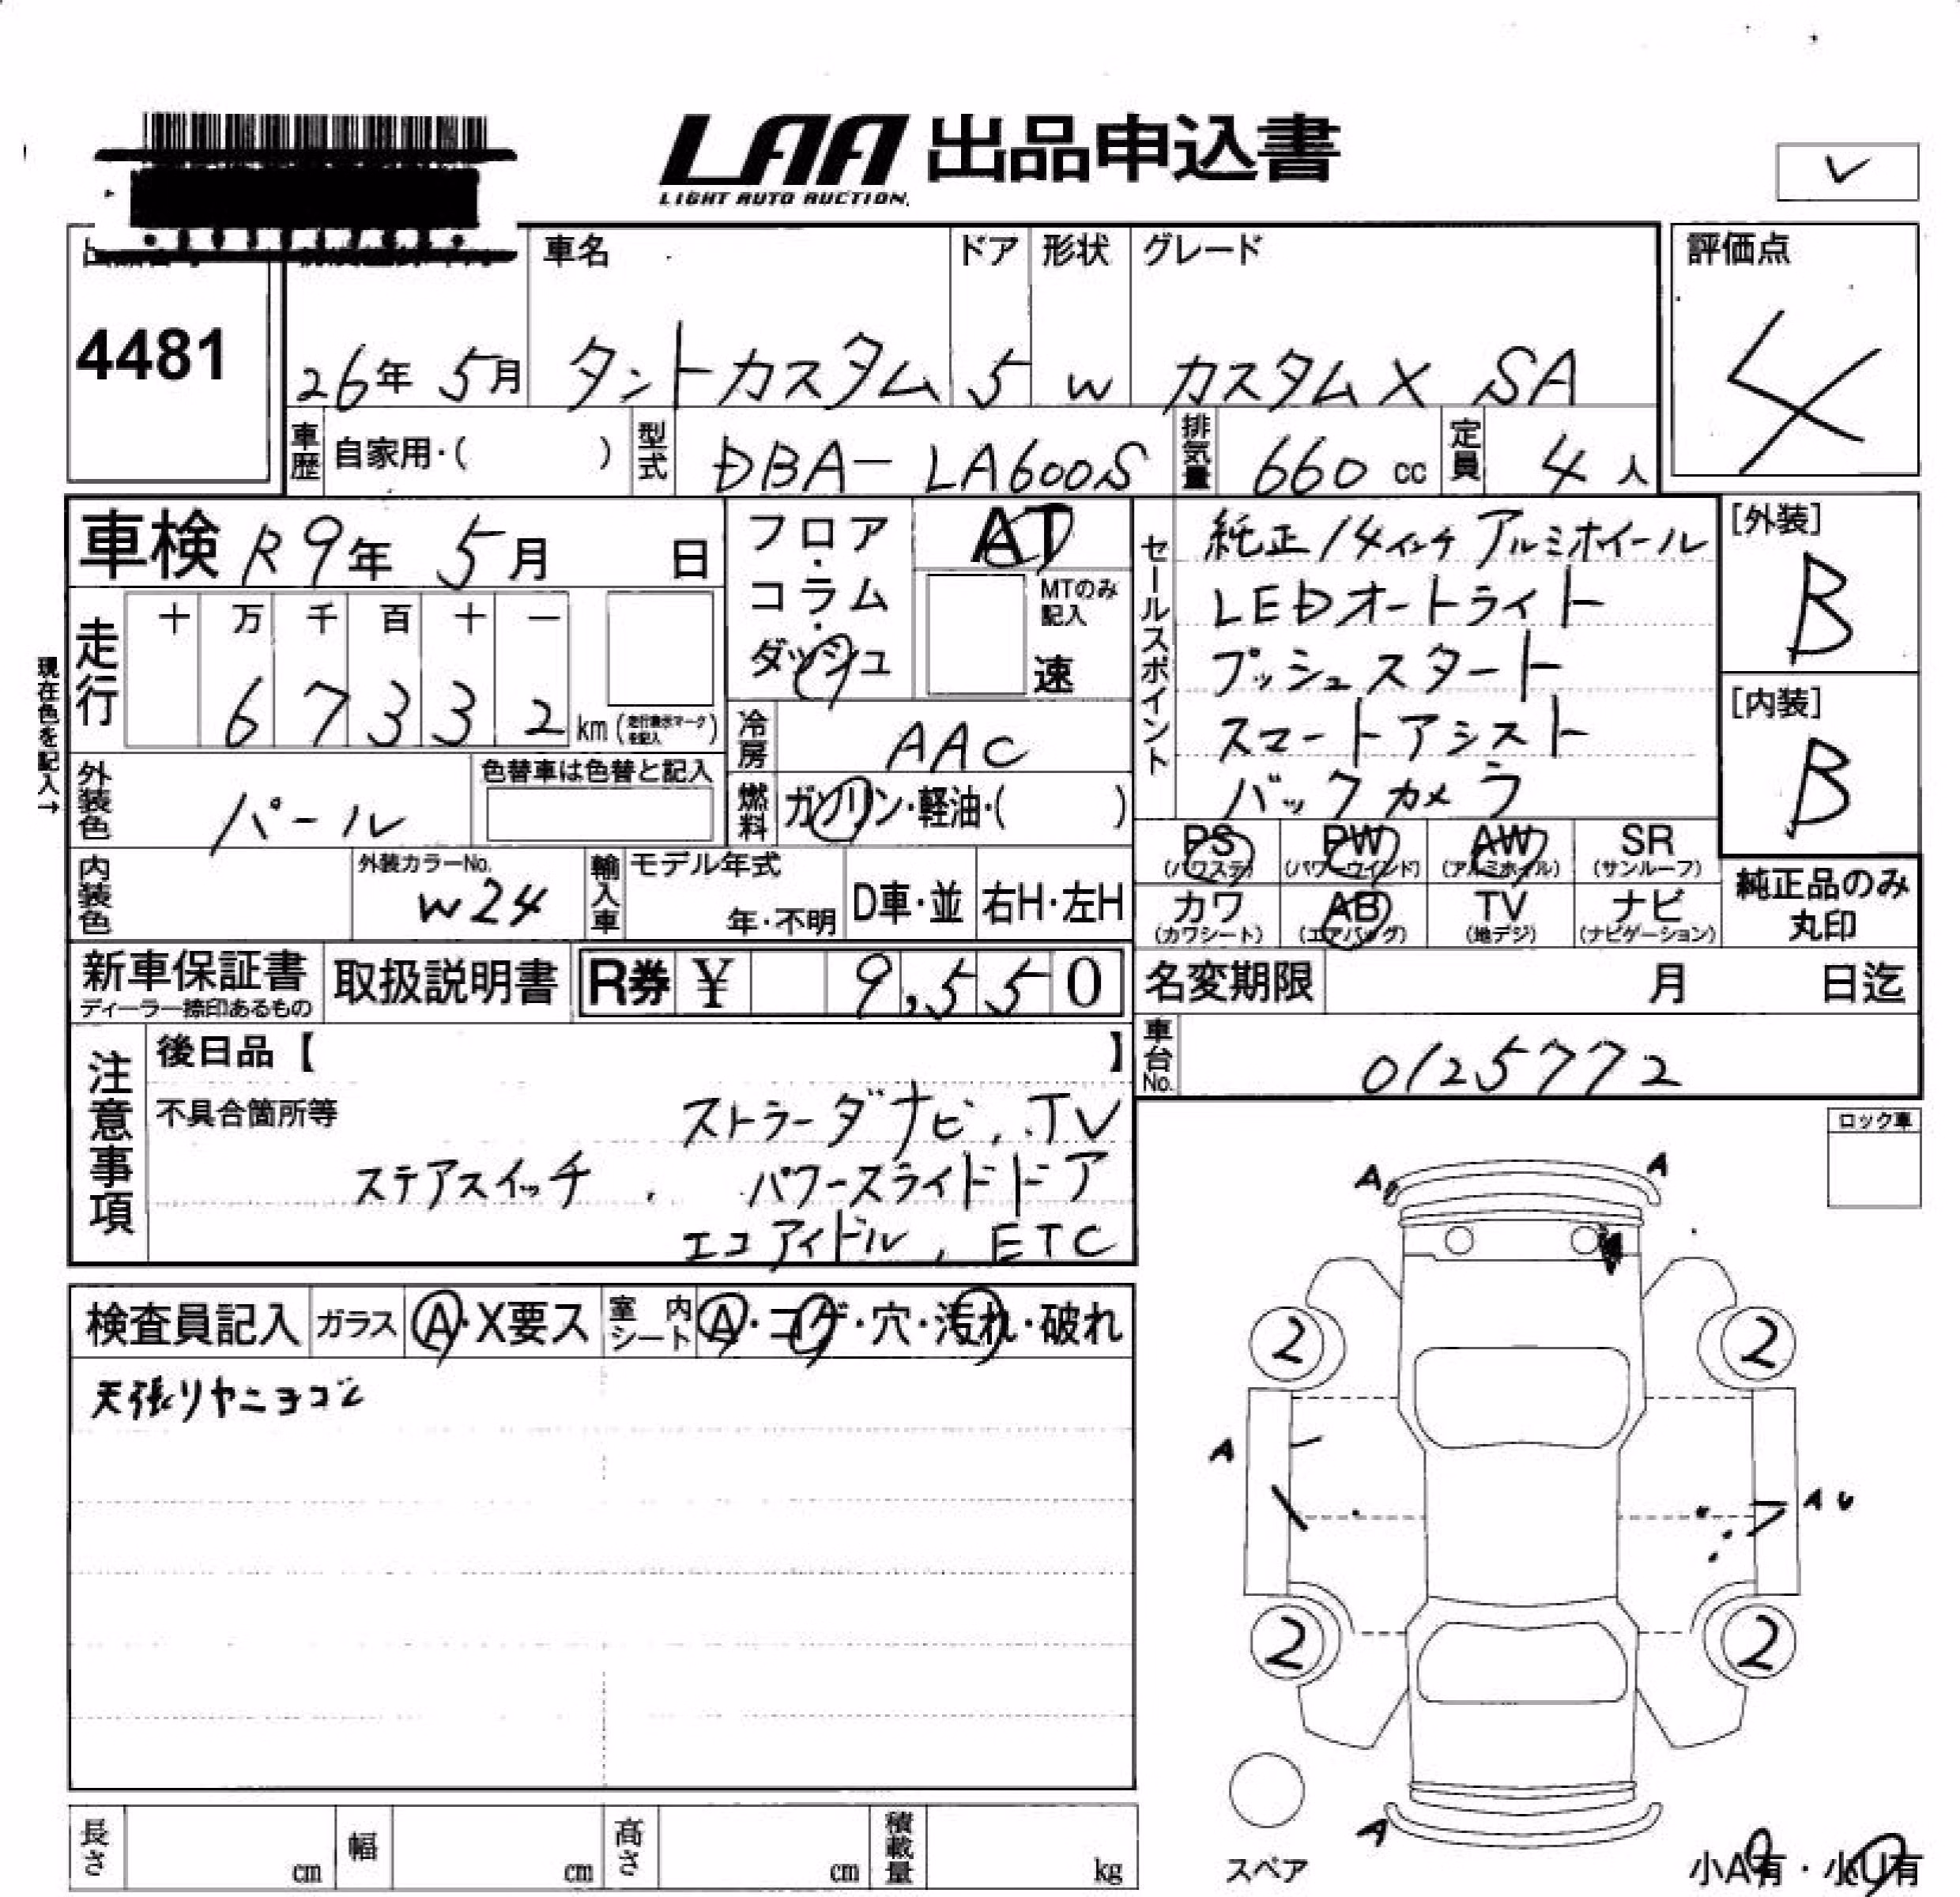 LAA 出品申込書
LIGHT AUTO AUCTION
車名 ドア 形状 グレード 評価点
4481 26年 5月 タントカスタム 5 W カスタムX SA 4
車歴 自家用・( ) 型式 DBA-LA600S 排気量 660 cc 定員 4 人
車検 R9年 5月 日
フロア・コラム・ダッシュ AT
MTのみ記入
速
セールスポイント
純正14インチアルミホイール
LEDオートライト
プッシュスタート
スマートアシスト
バックカメラ
[外装]
B
[内装]
B
現在色を記入→
走行 十 万 千 百 十 一
6 7 3 3 2 km (走行表示マークを記入)
冷房 AAC
外装色 パール 色替車は色替と記入
燃料 ガソリン・軽油・( )
PS (パワステ) PW (パワーウインド) AW (アルミホイル) SR (サンルーフ)
カワ (カワシート) AB (エアバッグ) TV (地デジ) ナビ (ナビゲーション)
純正品のみ
丸印
内装色 外装カラーNo. W24 輸入車 モデル年式 年・不明 D車・並 右H・左H
新車保証書 取扱説明書 R券 ¥ 9,550
ディーラー捺印あるもの
名変期限 月 日迄
車台No. 0125772
注意事項
後日品【 】
不具合箇所等 ストラーダナビ, TV
ステアスイッチ, パワースライドドア
エコアイドル, ETC
ロック車
A A
検査員記入 ガラス A・X要ス 室内シート A・コゲ・穴・汚れ・破れ
天張リヤニヨゴレ
2 2
A
A U
2 2
A
スペア
小A有・小U有
長さ cm 幅 cm 高さ cm 積載量 kg